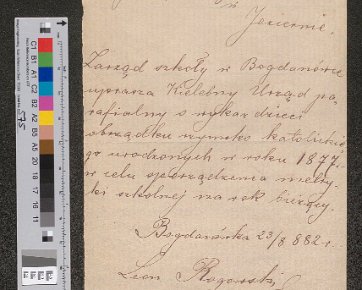 w
Jeziernie.
Zarząd szkoły w Bogdanówce
uprasza Wielebny Urząd pa-
rafialny o wykaz dzieci
obrządku rzymsko katolickie-
go urodzonych w roku 1877
w celu sporządzenia metry-
ki szkolnej na rok bieżący.
Bogdanówka 23/8 882 r.
Leon Rogowski
C1 B1 A1 C2 B2 A2 B5 A5 20 18 17 16 11 10 09